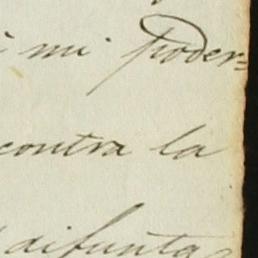 i mi poder=
contra la
difunta